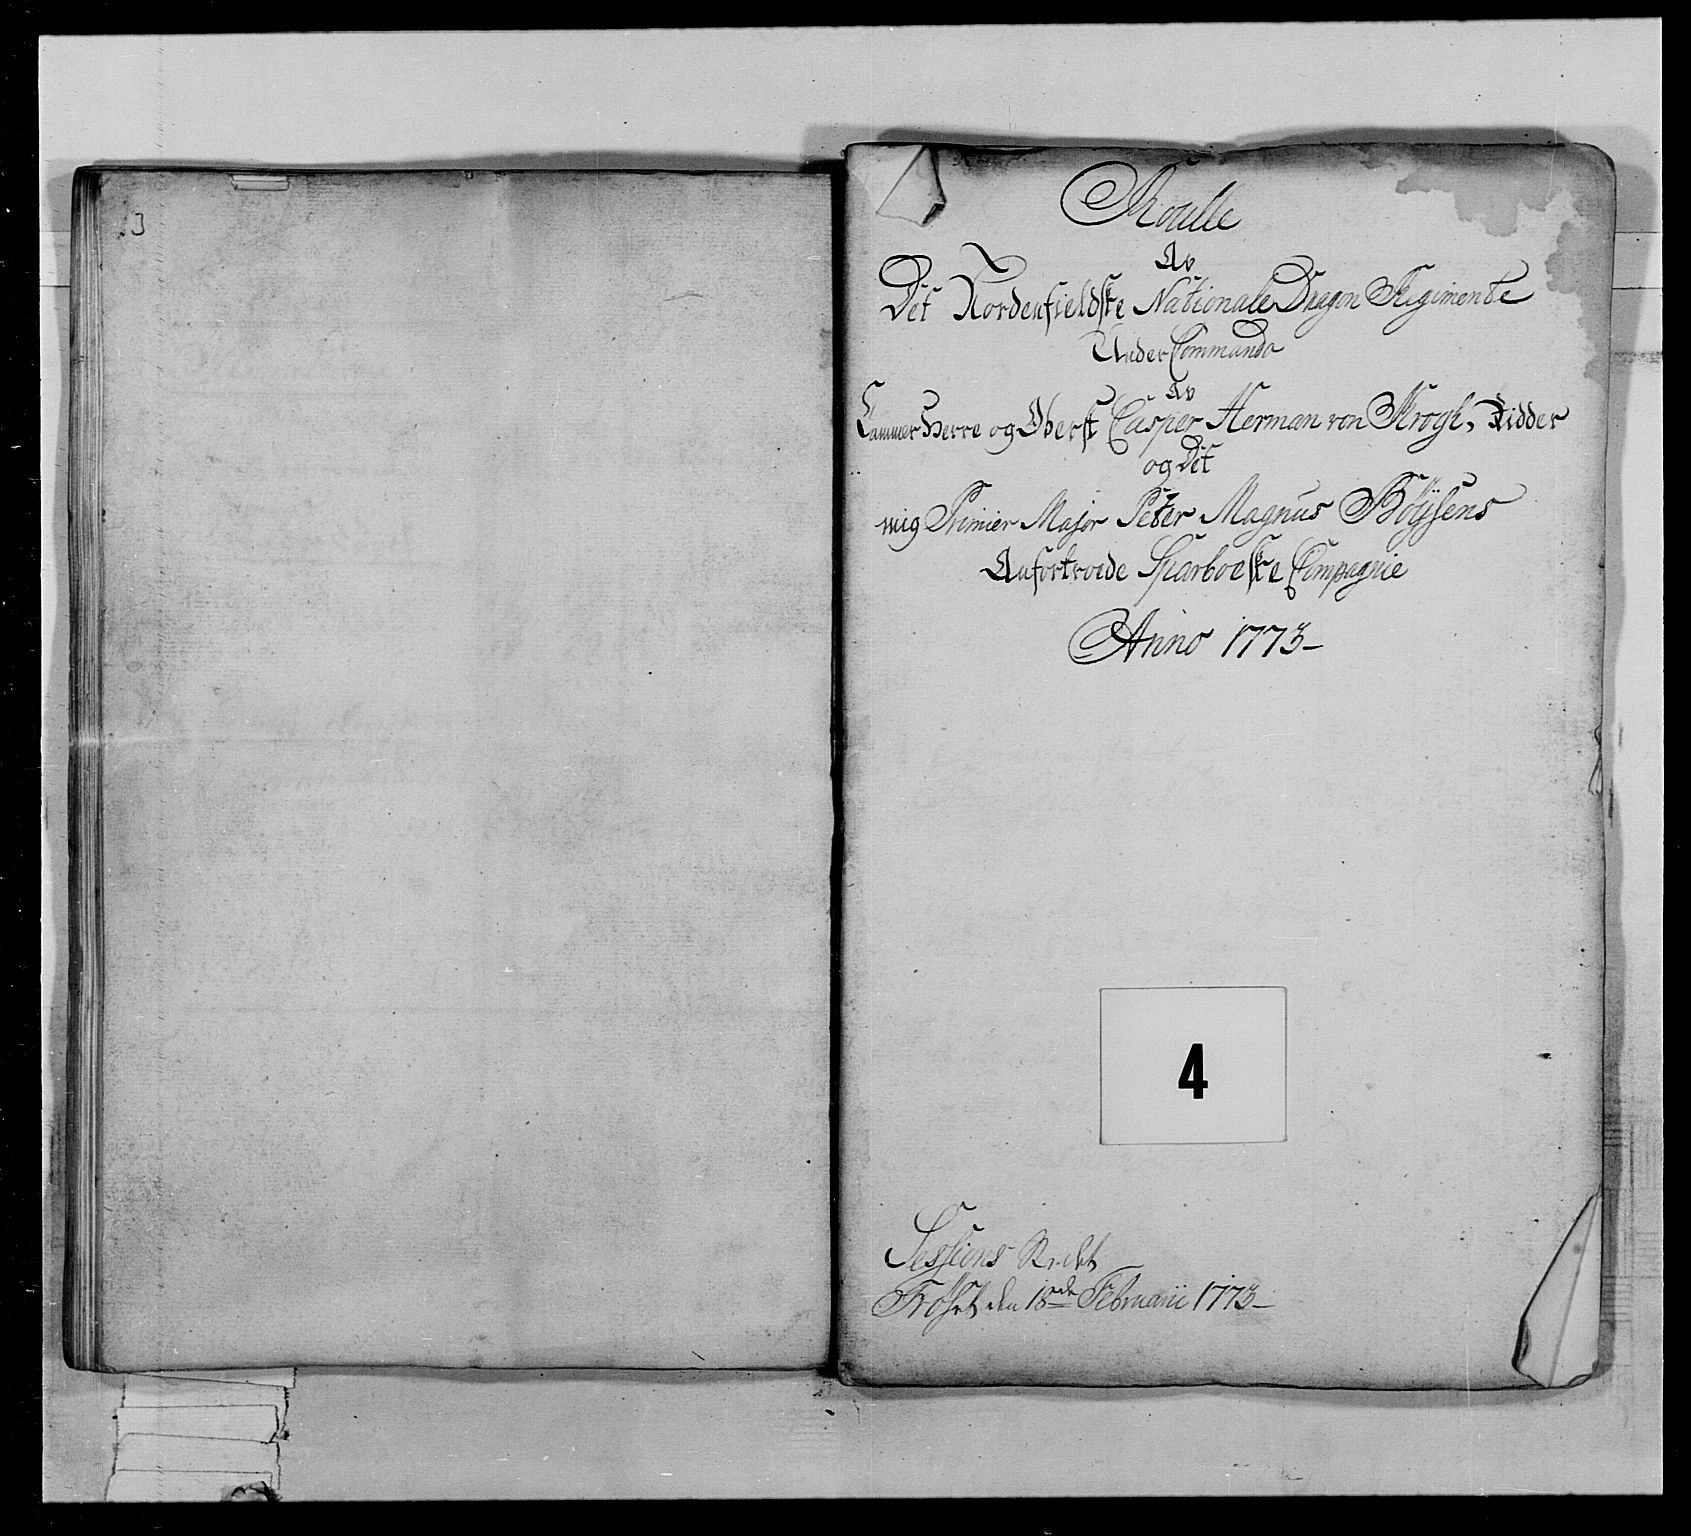 3
Roulle
Av
Det Nordenfieldske Nationale Dragon Regimente
Under Commando
Av
Cammer Herre og Oberst Casper Herman von Krogh, Ridder
og Det
mig Primier Major Peter Magnus Böÿsens
Anfortroede Sparboeske Compagnie
Anno 1773-
4
Sessions
den 18de Februarii 1773-